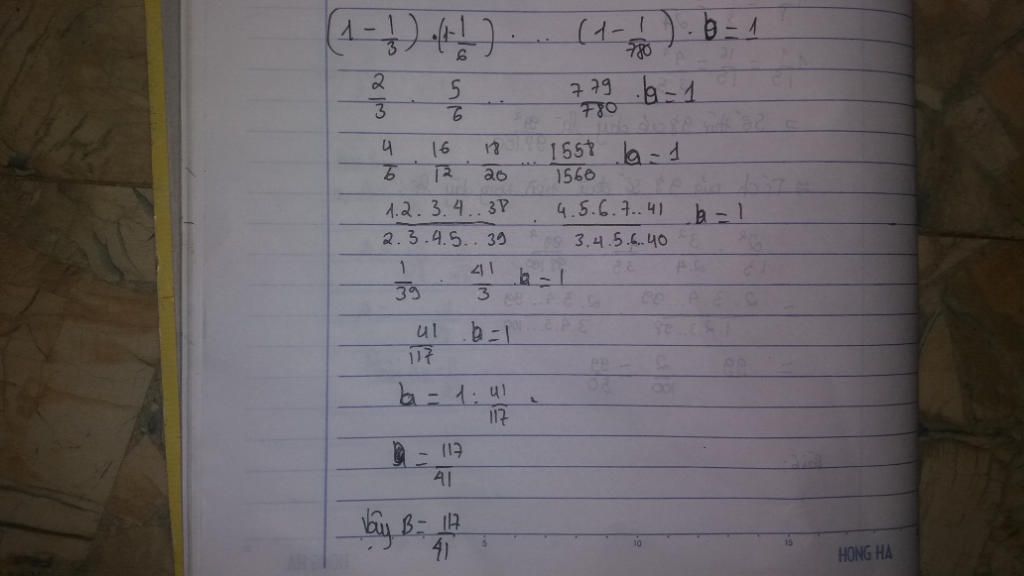 (1 - 1/3) . (1 - 1/6) . .. (1 - 1/780) . b = 1
2/3 . 5/6 .. 779/780 . b = 1
4/6 . 16/12 . 18/20 ... 1558/1560 . b = 1
1.2.3.4..38/2.3.4.5..39 . 4.5.6.7..41/3.4.5.6..40 . b = 1
1/39 . 41/3 . b = 1
41/117 . b = 1
b = 1 : 41/117 .
b = 117/41
Vậy B = 117/41
5 10 15
HONG HA